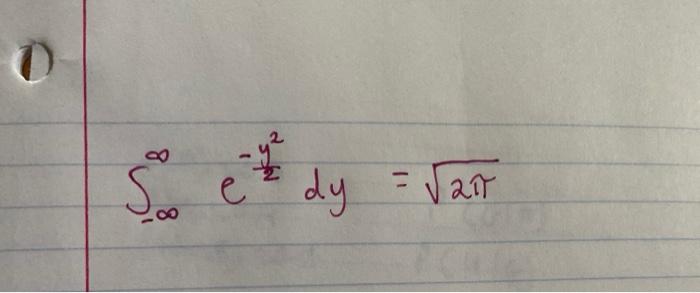 ∫_{-∞}^{∞} e^{-\frac{y^2}{2}} dy = √(2π)